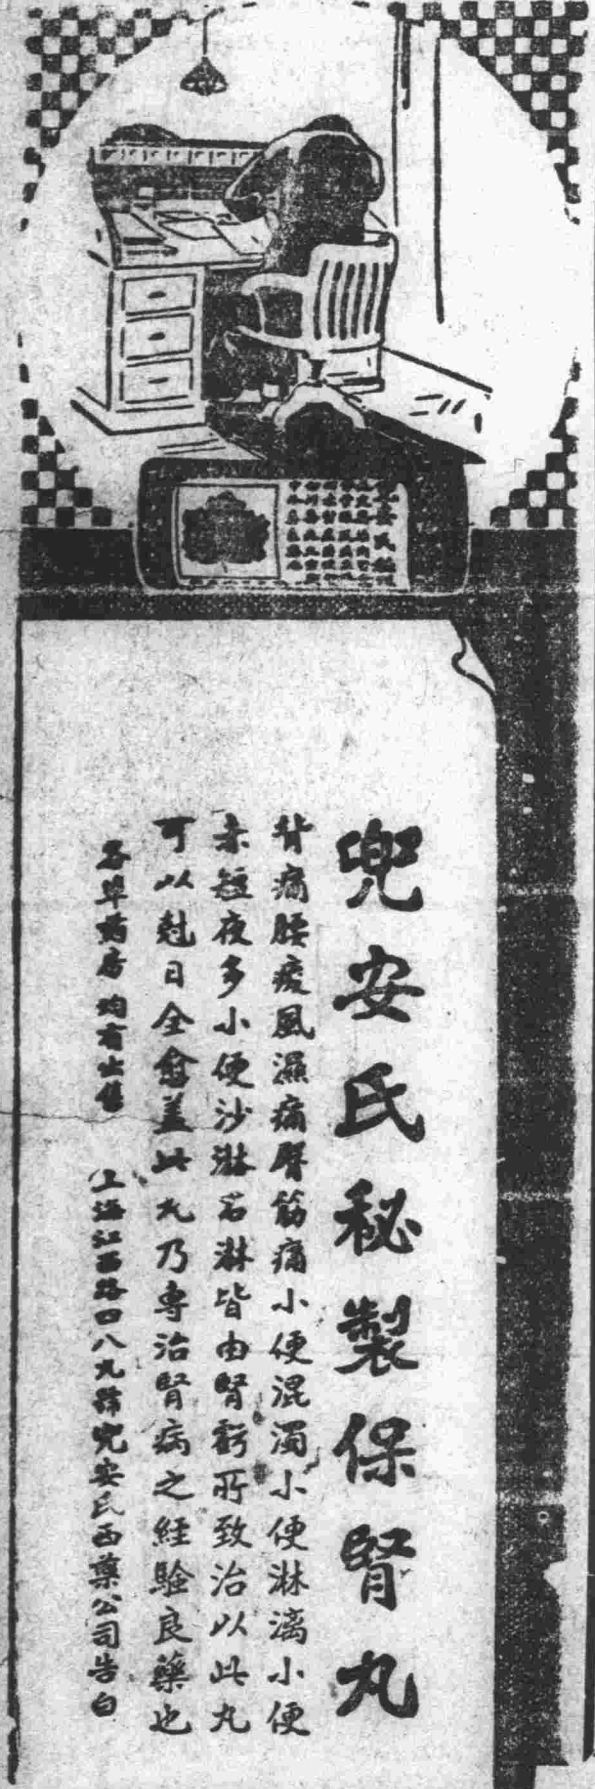 兜安氏秘製保腎丸
背痛腰痠風濕痛臀筋痛小便混濁小便淋漓小便
赤短夜多小便沙淋石淋皆由腎虧所致治以此丸
可以尅日全愈蓋此丸乃專治腎病之經驗良藥也
各埠葯房均有出售
上海江西路四八九號兜安氏西藥公司告白